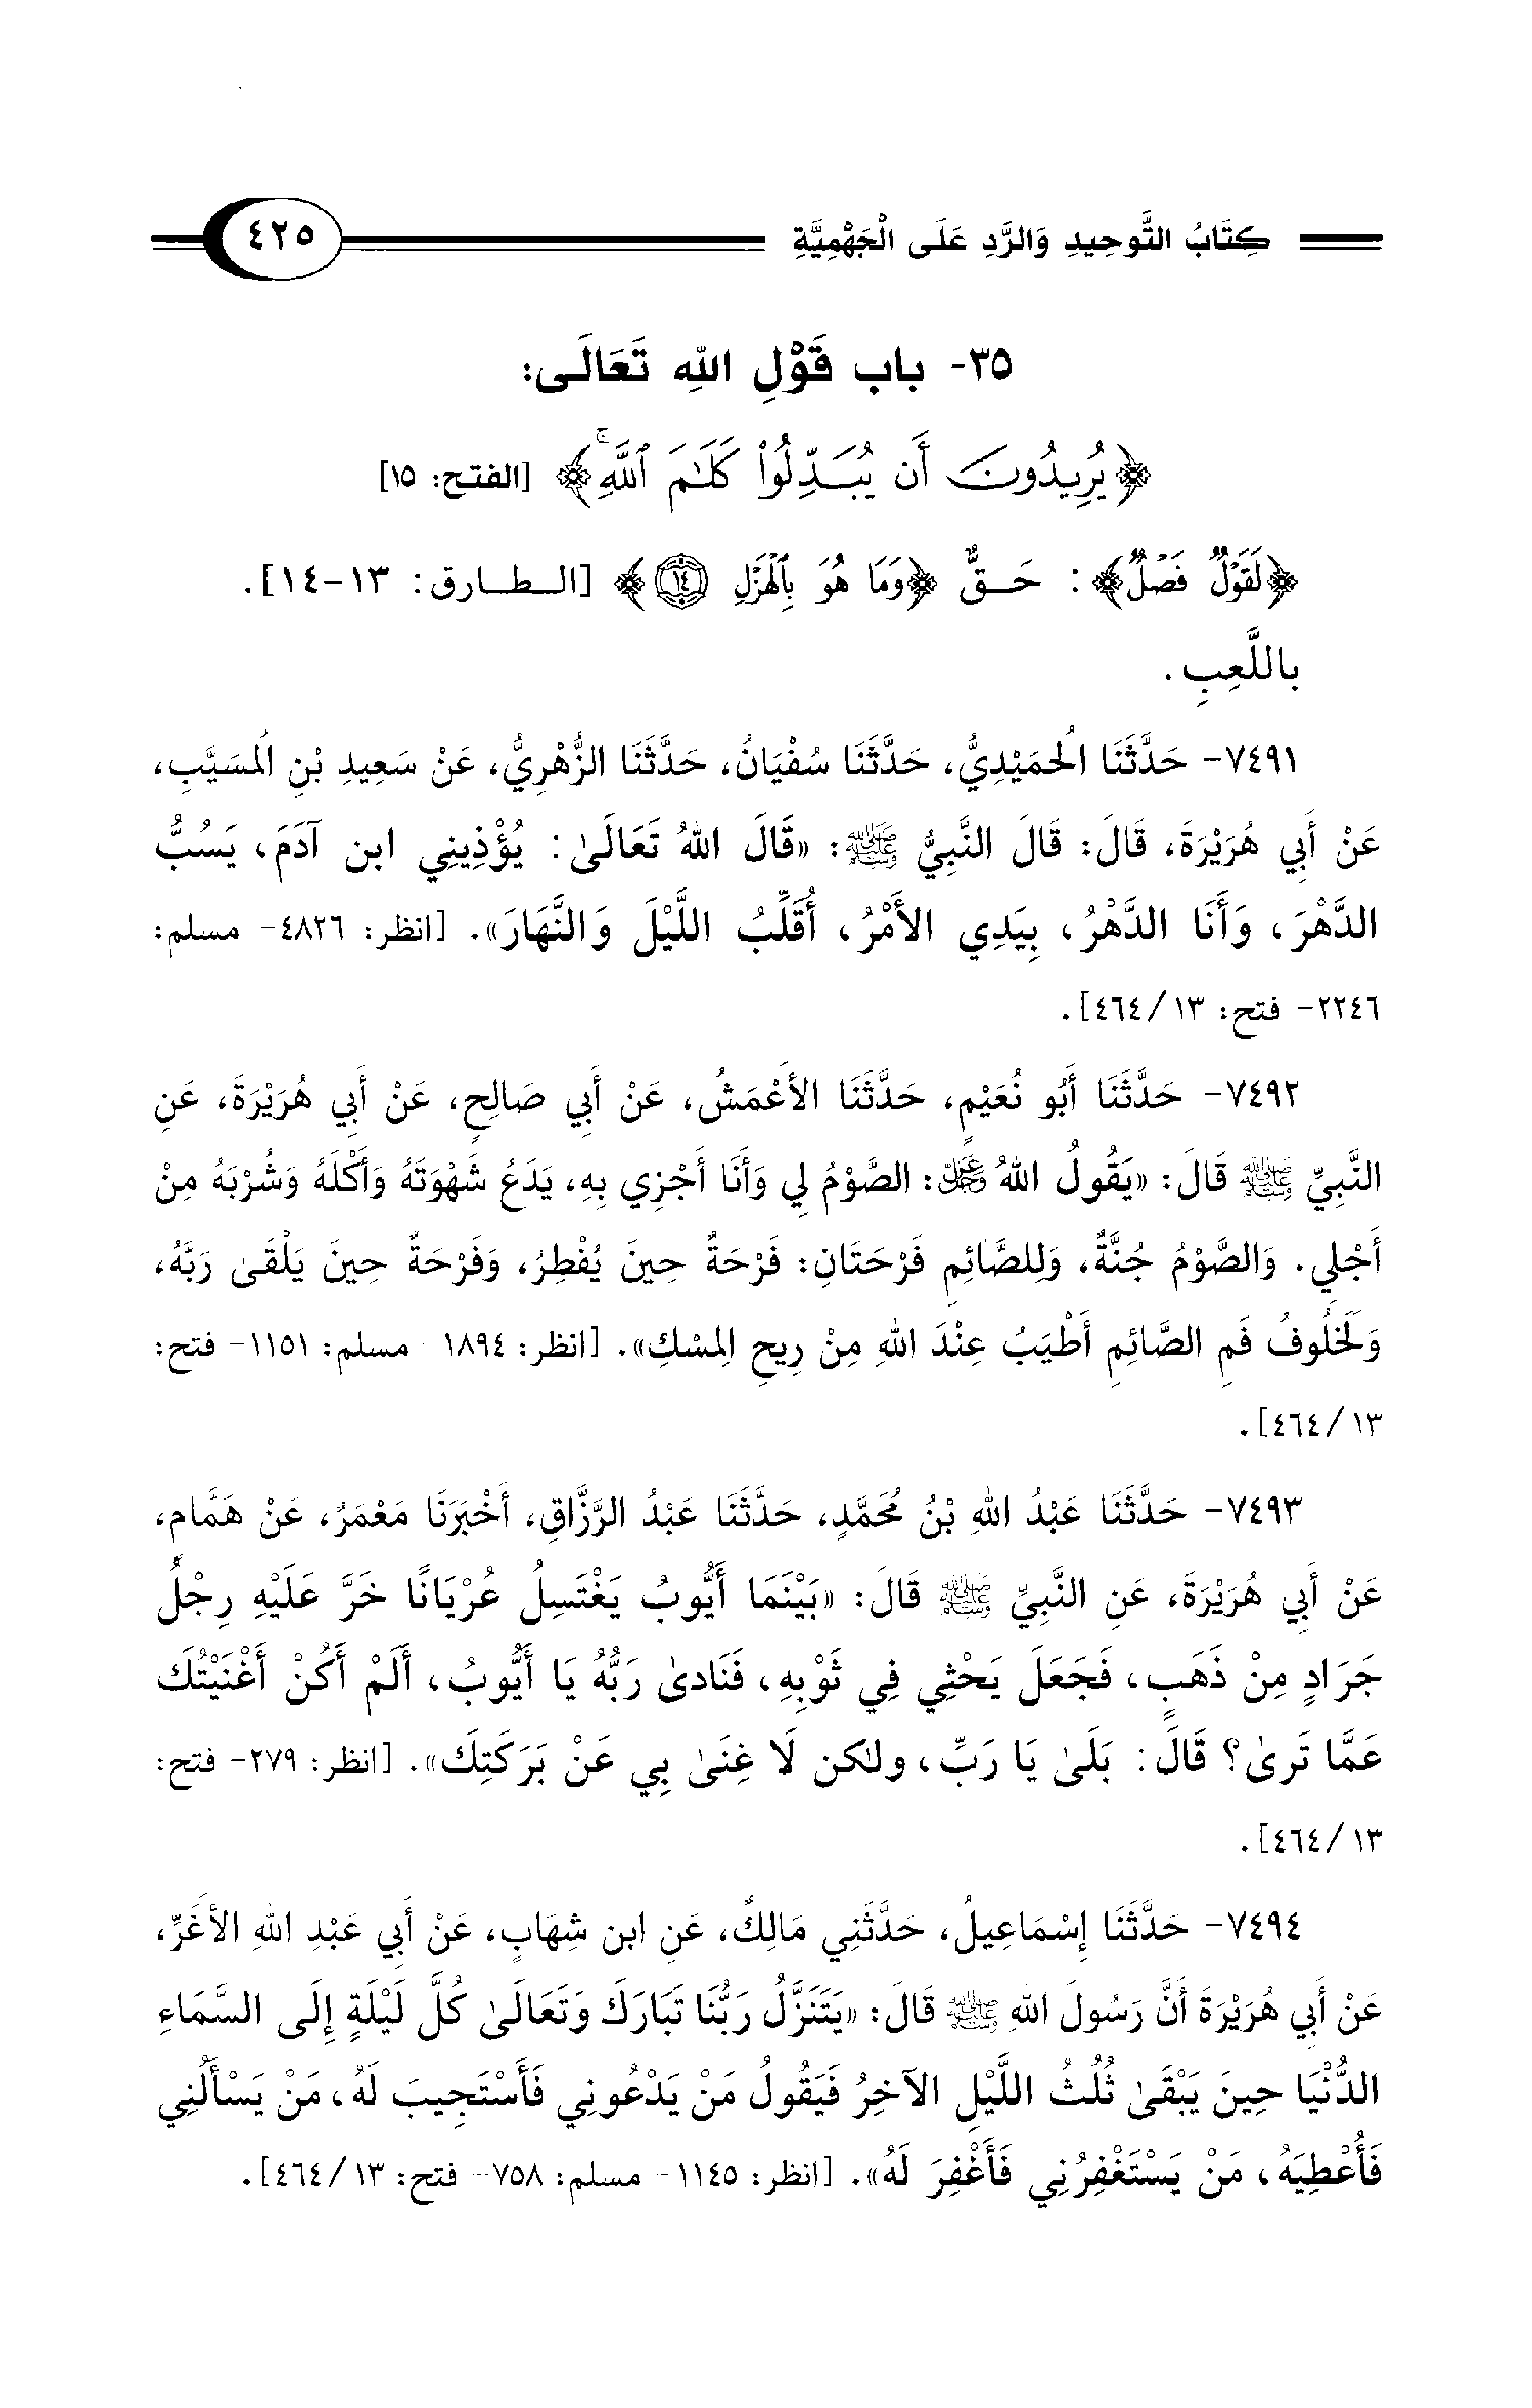 كِتَابُ التَّوحِيدِ وَالرَّدِ عَلَى الْجَهْمِيَّةِ
٤٢٥
٣٥- باب قَوْلِ اللهِ تَعَالَى:
﴿يُرِيدُونَ أَن يُبَدِّلُواْ كَلَٰمَ ٱللَّهِۚ﴾ [الفتح: ١٥]
﴿لَقَوْلٌ فَصْلٌ﴾: حَقٌّ ﴿وَمَا هُوَ بِٱلْهَزْلِ ١٤﴾ [الطارق: ١٣-١٤].
باللَّعِبِ.
٧٤٩١- حَدَّثَنَا الُحمَيْدِيُّ، حَدَّثَنَا سُفْيَانُ، حَدَّثَنَا الزُّهْرِيُّ، عَنْ سَعِيدِ بْنِ الُمسَيَّبِ،
عَنْ أَبِي هُرَيْرَةَ، قَالَ: قَالَ النَّبِيُّ ﷺ: «قَالَ اللهُ تَعَالَىٰ: يُؤْذِينِي ابن آدَمَ، يَسُبُّ
الدَّهْرَ، وَأَنَا الدَّهْرُ، بِيَدِي الأَمْرُ، أُقَلِّبُ اللَّيْلَ وَالنَّهَارَ». [انظر: ٤٨٢٦- مسلم:
٢٢٤٦- فتح: ١٣/ ٤٦٤].
٧٤٩٢- حَدَّثَنَا أَبُو نُعَيْمٍ، حَدَّثَنَا الأَعْمَشُ، عَنْ أَبِي صَالِحٍ، عَنْ أَبِي هُرَيْرَةَ، عَنِ
النَّبِيِّ ﷺ قَالَ: «يَقُولُ اللهُ عَزَّ وَجَلَّ: الصَّوْمُ لِي وَأَنَا أَجْزِي بِهِ، يَدَعُ شَهْوَتَهُ وَأَكْلَهُ وَشُرْبَهُ مِنْ
أَجْلِي. وَالصَّوْمُ جُنَّةٌ، وَلِلصَّائِمِ فَرْحَتَانِ: فَرْحَةٌ حِينَ يُفْطِرُ، وَفَرْحَةٌ حِينَ يَلْقَىٰ رَبَّهُ،
وَلَخَلُوفُ فَمِ الصَّائِمِ أَطْيَبُ عِنْدَ اللهِ مِنْ رِيحِ الِمسْكِ». [انظر: ١٨٩٤- مسلم: ١١٥١- فتح:
١٣/ ٤٦٤].
٧٤٩٣- حَدَّثَنَا عَبْدُ اللهِ بْنُ مُحَمَّدٍ، حَدَّثَنَا عَبْدُ الرَّزَّاقِ، أَخْبَرَنَا مَعْمَرُ، عَنْ هَمَّامٍ،
عَنْ أَبِي هُرَيْرَةَ، عَنِ النَّبِيِّ ﷺ قَالَ: «بَيْنَمَا أَيُّوبُ يَغْتَسِلُ عُرْيَانًا خَرَّ عَلَيْهِ رِجْلُ
جَرَادٍ مِنْ ذَهَبٍ، فَجَعَلَ يَحْثِي فِي ثَوْبِهِ، فَنَادىٰ رَبُّهُ يَا أَيُّوبُ، أَلَمْ أَكُنْ أَغْنَيْتُكَ
عَمَّا تَرىٰ؟ قَالَ: بَلَىٰ يَا رَبِّ، ولٰكن لَا غِنَىٰ بِي عَنْ بَرَكَتِكَ». [انظر: ٢٧٩- فتح:
١٣/ ٤٦٤].
٧٤٩٤- حَدَّثَنَا إِسْمَاعِيلُ، حَدَّثَنِي مَالِكٌ، عَنِ ابن شِهَابٍ، عَنْ أَبِي عَبْدِ اللهِ الأَغَرِّ،
عَنْ أَبِي هُرَيْرَةَ أَنَّ رَسُولَ اللهِ ﷺ قَالَ: «يَتَنَزَّلُ رَبُّنَا تَبَارَكَ وَتَعَالَىٰ كُلَّ لَيْلَةٍ إِلَى السَّمَاءِ
الدُّنْيَا حِينَ يَبْقَىٰ ثُلُثُ اللَّيْلِ الآخِرُ فَيَقُولُ مَنْ يَدْعُونِي فَأَسْتَجِيبَ لَهُ، مَنْ يَسْأَلُنِي
فَأُعْطِيَهُ، مَنْ يَسْتَغْفِرُنِي فَأَغْفِرَ لَهُ». [انظر: ١١٤٥- مسلم: ٧٥٨- فتح: ١٣/ ٤٦٤].